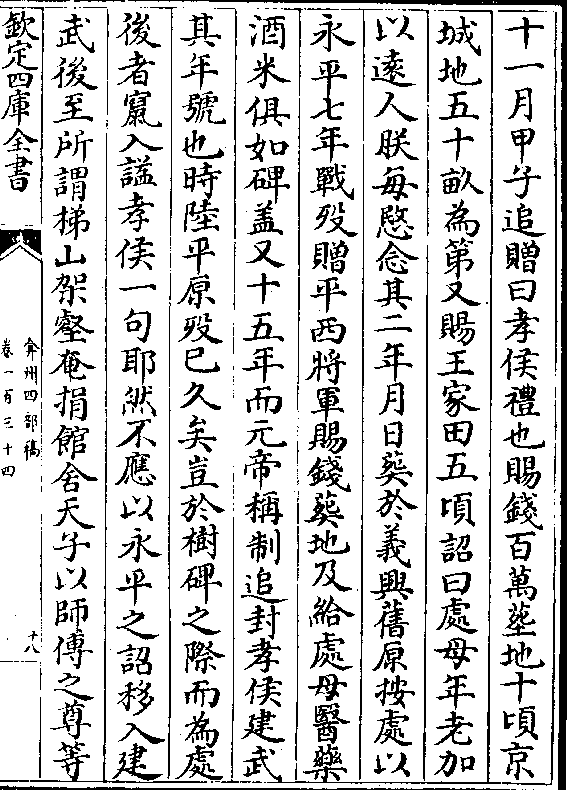 十一月甲子追贈曰孝侯禮也賜錢百萬塟地十頃京
城地五十畝為第又賜王家田五頃詔曰處母年老加
以遠人朕每愍念其二年月日葬於義興舊原按處以
永平七年戰歿贈平西將軍賜錢葬地及給處母醫藥
酒米俱如碑盖又十五年而元帝稱制追封孝侯建武
其年號也時陸平原歿已久矣豈於樹碑之際而為處
後者竄入諡孝侯一句耶然不應以永平之詔移入建
武後至所謂梯山架壑奄捐館舍天子以師傅之尊等
欽定四庫全書
弇州四部稿
卷一百三十四
十八